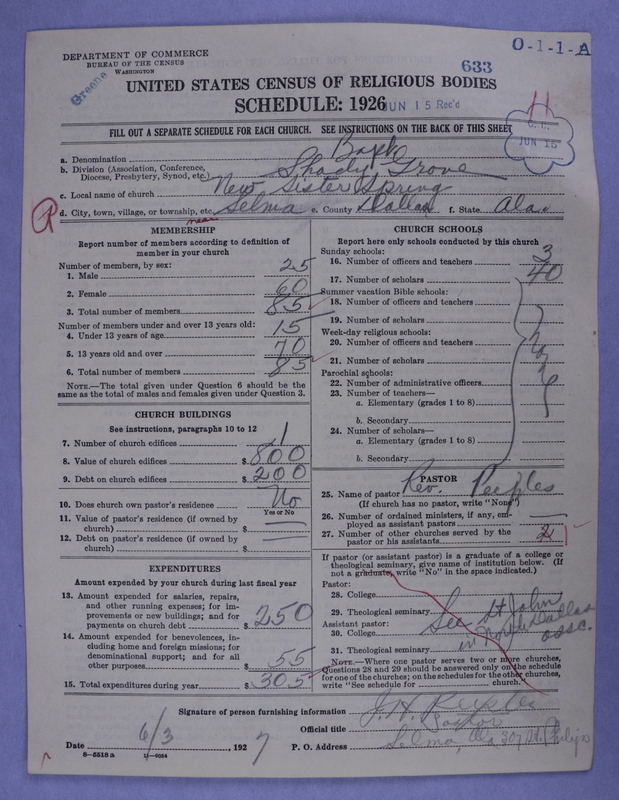 DEPARTMENT OF COMMERCE
BUREAU OF THE CENSUS
WASHINGTON
Greene
633
O-1-1-A
UNITED STATES CENSUS OF RELIGIOUS BODIES
SCHEDULE: 1926
JUN 15 Rec'd
11
FILL OUT A SEPARATE SCHEDULE FOR EACH CHURCH. SEE INSTRUCTIONS ON THE BACK OF THIS SHEET
JUN 15
a. Denomination Bapt
b. Division (Association, Conference, Diocese, Presbytery, Synod, etc.) Shady Grove
c. Local name of church New Sister Spring
d. City, town, village, or township, etc. near Selma e. County Dallas f. State Ala.
MEMBERSHIP
Report number of members according to definition of member in your church
Number of members, by sex:
1. Male 25
2. Female 60
3. Total number of members 85
Number of members under and over 13 years old:
4. Under 13 years of age 15
5. 13 years old and over 70
6. Total number of members 85
NOTE.—The total given under Question 6 should be the same as the total of males and females given under Question 3.
CHURCH BUILDINGS
See instructions, paragraphs 10 to 12
7. Number of church edifices 1
8. Value of church edifices $ 800
9. Debt on church edifices $ 200
10. Does church own pastor's residence No
Yes or No
11. Value of pastor's residence (if owned by church) $
12. Debt on pastor's residence (if owned by church) $
EXPENDITURES
Amount expended by your church during last fiscal year
13. Amount expended for salaries, repairs, and other running expenses; for improvements or new buildings; and for payments on church debt $ 250
14. Amount expended for benevolences, including home and foreign missions; for denominational support; and for all other purposes $ 55
15. Total expenditures during year $ 305
CHURCH SCHOOLS
Report here only schools conducted by this church
Sunday schools:
16. Number of officers and teachers 3
17. Number of scholars 40
Summer vacation Bible schools:
18. Number of officers and teachers
19. Number of scholars
Week-day religious schools:
20. Number of officers and teachers
21. Number of scholars
None
Parochial schools:
22. Number of administrative officers
23. Number of teachers—
a. Elementary (grades 1 to 8)
b. Secondary
24. Number of scholars—
a. Elementary (grades 1 to 8)
b. Secondary
PASTOR
25. Name of pastor Rev. Peeples
(If church has no pastor, write "None")
26. Number of ordained ministers, if any, employed as assistant pastors
27. Number of other churches served by the pastor or his assistants 2
If pastor (or assistant pastor) is a graduate of a college or theological seminary, give name of institution below. (If not a graduate, write "No" in the space indicated.)
Pastor:
28. College
29. Theological seminary
See St John
in North Dallas
assc.
Assistant pastor:
30. College
31. Theological seminary
NOTE.—Where one pastor serves two or more churches, Questions 28 and 29 should be answered only on the schedule for one of the churches; on the schedules for the other churches, write "See schedule for church."
Signature of person furnishing information J. H. Peeples
Official title Pastor
Date 6/3, 1927 P. O. Address Selma, Ala 307 St. Philips
8—5518 a 11—9084